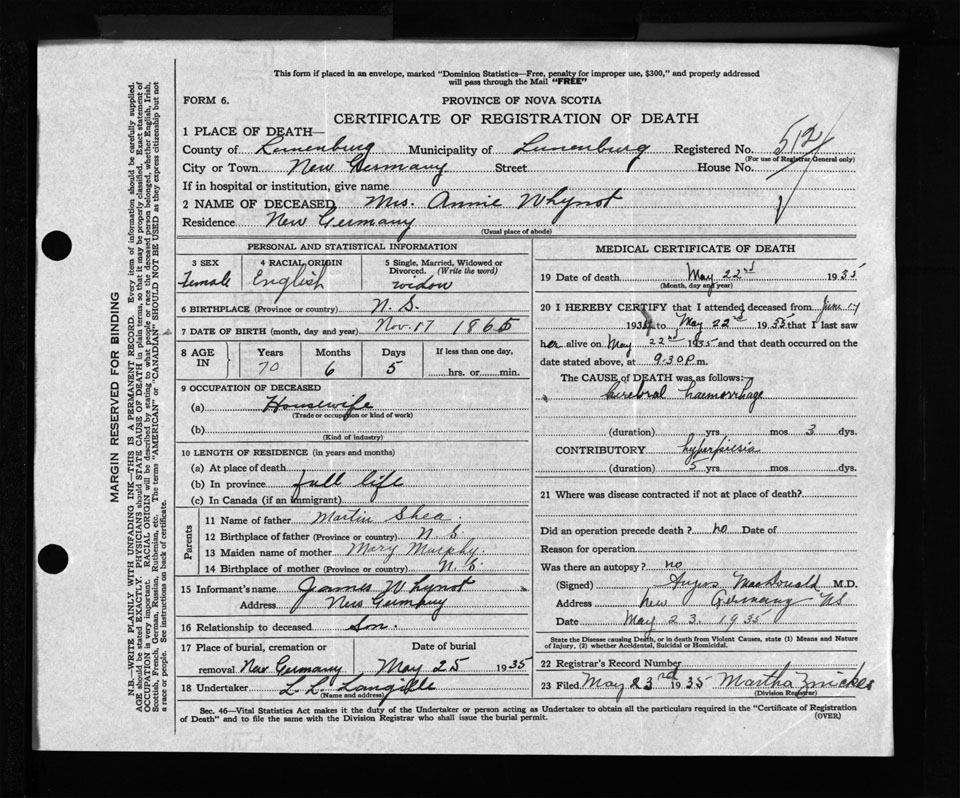 This form if placed in an envelope, marked "Dominion Statistics—Free, penalty for improper use, $300," and properly addressed
will pass through the Mail "FREE"
FORM 6.
PROVINCE OF NOVA SCOTIA
CERTIFICATE OF REGISTRATION OF DEATH
1 PLACE OF DEATH—
County of Lunenburg Municipality of Lunenburg Registered No. 512
(For use of Registrar General only)
City or Town New Germany Street House No.
If in hospital or institution, give name
2 NAME OF DECEASED Mrs. Annie Whynot
Residence New Germany
(Usual place of abode)
PERSONAL AND STATISTICAL INFORMATION
3 SEX
Female
4 RACIAL ORIGIN
English
5 Single, Married, Widowed or
Divorced. (Write the word)
widow
6 BIRTHPLACE (Province or country) N. S.
7 DATE OF BIRTH (month, day and year) Nov. 17 1865
8 AGE IN
Years Months Days If less than one day,
70 6 5 hrs. or min.
9 OCCUPATION OF DECEASED
(a) Housewife
(Trade or occupation or kind of work)
(b)
(Kind of industry)
10 LENGTH OF RESIDENCE (in years and months)
(a) At place of death
(b) In province full life
(c) In Canada (if an immigrant)
Parents
11 Name of father Martin Shea
12 Birthplace of father (Province or country) N. S.
13 Maiden name of mother Mary Murphy.
14 Birthplace of mother (Province or country) N. S.
15 Informant's name James Whynot
Address New Germany
16 Relationship to deceased Son.
17 Place of burial, cremation or
removal New Germany
Date of burial
May 25 1935
18 Undertaker L. L. Langille
(Name and address)
MEDICAL CERTIFICATE OF DEATH
19 Date of death May 22nd 1935
(Month, day and year)
20 I HEREBY CERTIFY that I attended deceased from June 17
193 to May 22nd 1935 that I last saw
her alive on May 22nd 1935 and that death occurred on the
date stated above, at 9.30 P.m.
The CAUSE of DEATH was as follows:
Cerebral haemorrhage
(duration) yrs. mos 3 dys.
CONTRIBUTORY hyperpiesia
(duration) 5 yrs mos dys.
21 Where was disease contracted if not at place of death?
Did an operation precede death? no Date of
Reason for operation
Was there an autopsy? no
(Signed) Angus MacDonald M.D.
Address New Germany NS
Date May 23. 1935
State the Disease causing Death, or in death from Violent Causes, state (1) Means and Nature
of Injury, (2) whether Accidental, Suicidal or Homicidal.
22 Registrar's Record Number
23 Filed May 23rd 1935 Martha Zwicker
(Division Registrar)
Sec. 46—Vital Statistics Act makes it the duty of the Undertaker or person acting as Undertaker to obtain all the particulars required in the "Certificate of Registration
of Death" and to file the same with the Division Registrar who shall issue the burial permit.
(OVER)
MARGIN RESERVED FOR BINDING
N.B.—WRITE PLAINLY WITH UNFADING INK—THIS IS A PERMANENT RECORD. Every item of information should be carefully supplied.
AGE should be stated EXACTLY. PHYSICIANS should STATE CAUSE OF DEATH in plain terms, so that it may be properly classified. Exact statement of
OCCUPATION is very important. RACIAL ORIGIN will be described by stating to what people or race the deceased person belonged, whether English, Irish,
Scottish, French, German, Russian, Ruthenian, etc. The terms "AMERICAN" or "CANADIAN" SHOULD NOT BE USED as they express citizenship but not
a race or people. See instructions on back of certificate.